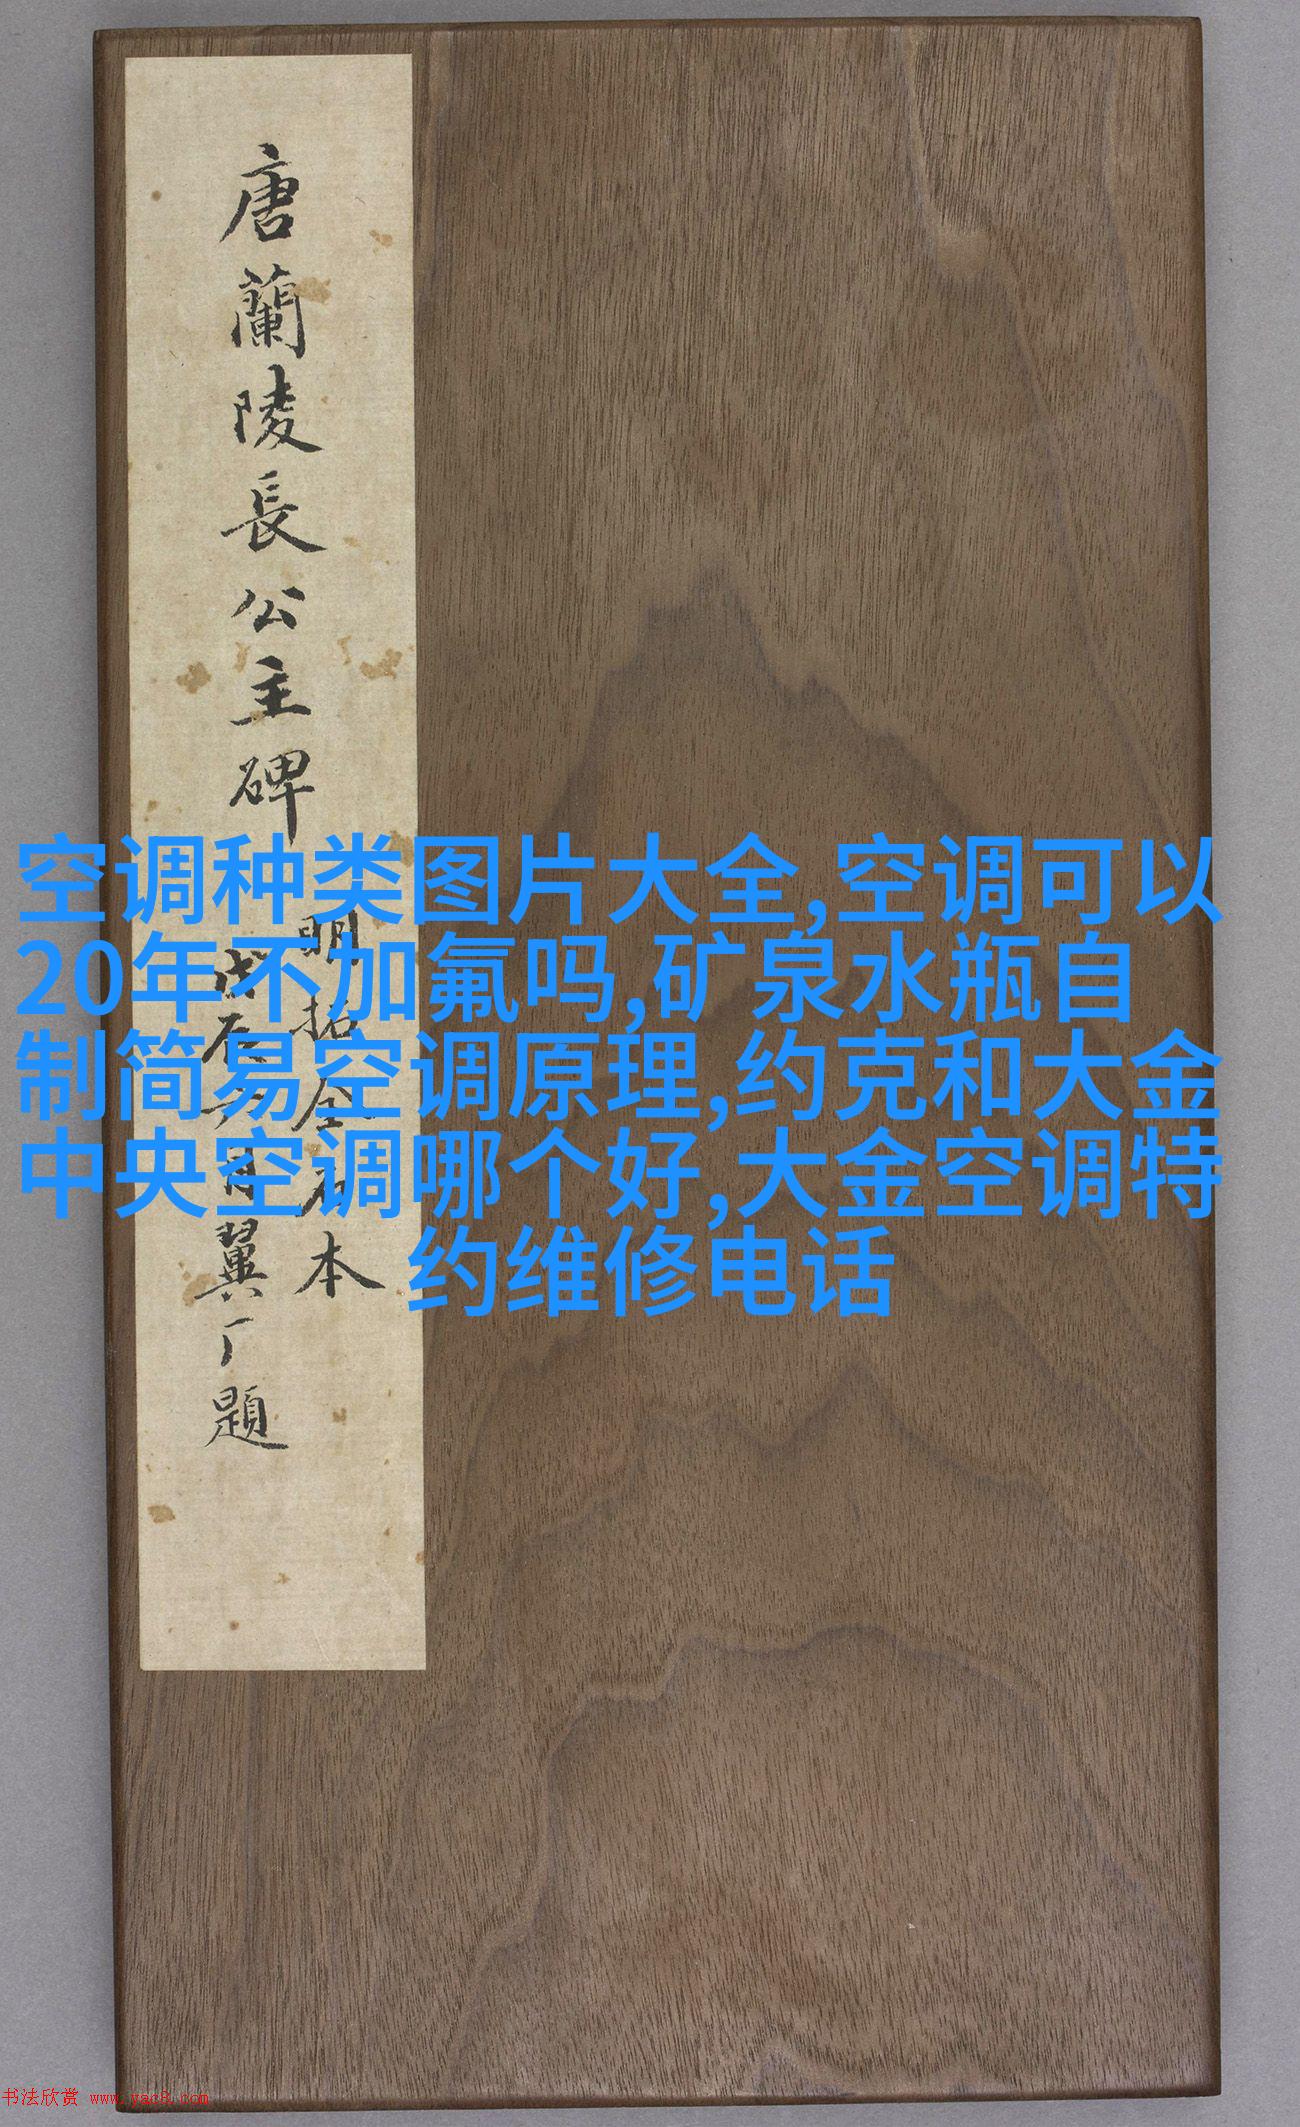 唐蘭陵長公主碑
明拓全石本
戊辰六月翼厂題
空调种类图片大全,空调可以
20年不加氟吗,矿泉水瓶自
制简易空调原理,约克和大金
中央空调哪个好,大金空调特
约维修电话
书法欣赏 www.yac8.com